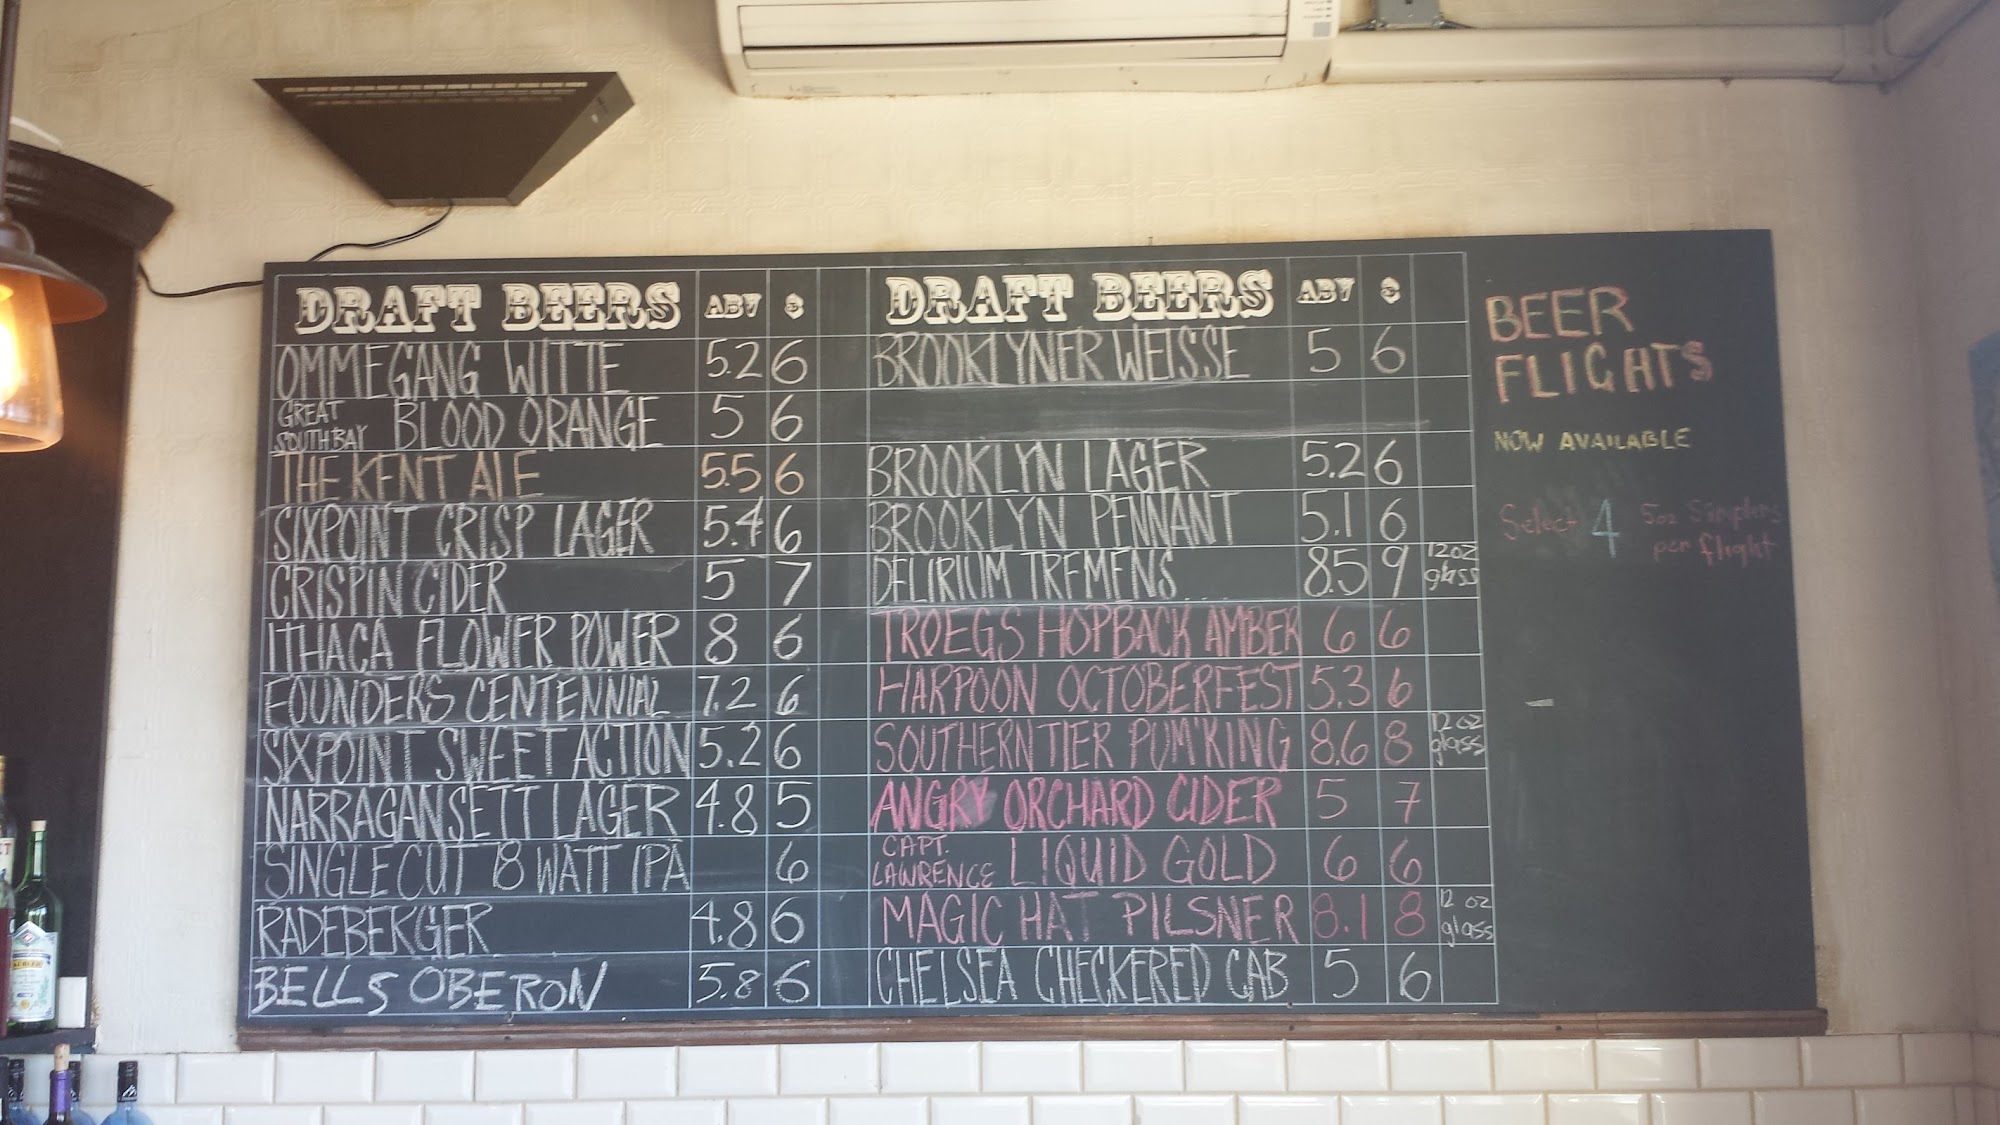 DRAFT BEERS ABV $
OMMEGANG WITTE 5.2 6
GREAT SOUTH BAY BLOOD ORANGE 5 6
THE KENT ALE 5.5 6
SIXPOINT CRISP LAGER 5.4 6
CRISPIN CIDER 5 7
ITHACA FLOWER POWER 8 6
FOUNDERS CENTENNIAL 7.2 6
SIXPOINT SWEET ACTION 5.2 6
NARRAGANSETT LAGER 4.8 5
SINGLECUT 18 WATT IPA 6
RADEBERGER 4.8 6
BELLS OBERON 5.8 6
DRAFT BEERS ABV $
BROOKLYNER WEISSE 5 6
BROOKLYN LAGER 5.2 6
BROOKLYN PENNANT 5.1 6
DELIRIUM TREMENS 8.5 9 12oz glass
TROEGS HOPBACK AMBER 6 6
HARPOON OCTOBERFEST 5.3 6
SOUTHERN TIER PUM'KING 8.6 8 12 oz glass
ANGRY ORCHARD CIDER 5 7
CAPT. LAWRENCE LIQUID GOLD 6 6
MAGIC HAT PILSNER 8.1 8 12 oz glass
CHELSEA CHECKERED CAB 5 6
BEER
FLIGHTS
NOW AVAILABLE
Select 4 5oz Simplers
per flight